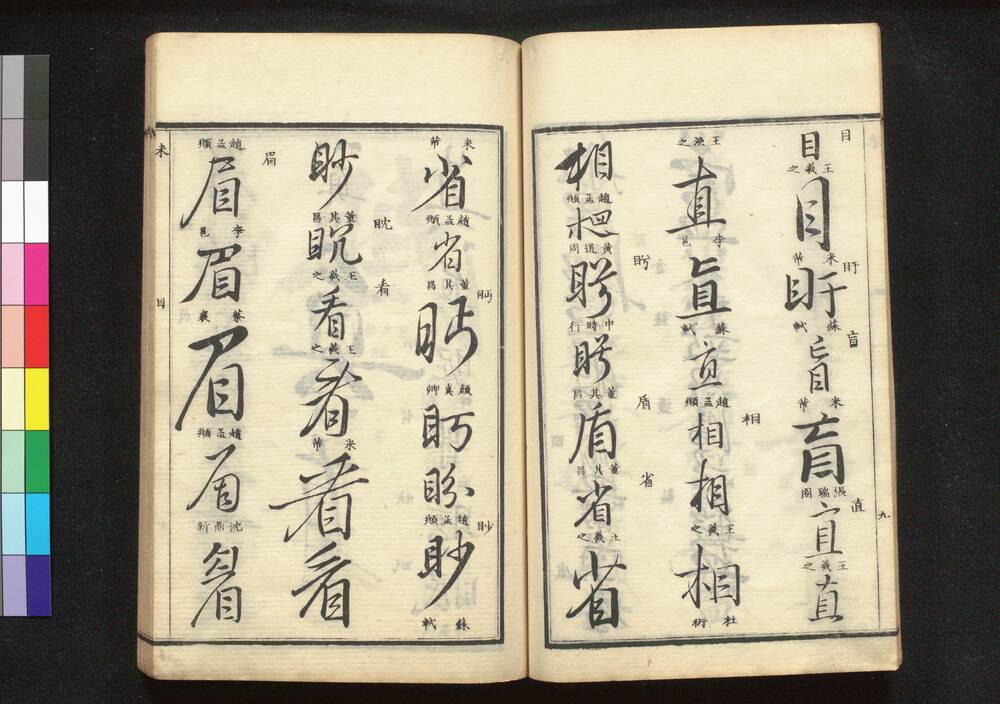 目
目
王羲之
目
米芾
盱
盱
蘇軾
盲
盲
米芾
盲
張瑞圖
直
直
王羲之
直
九
王洪之
直
李邕
直
蘇軾
直
趙孟頫
相
相
相
王羲之
相
杜衍
相
趙孟頫
相
黄道周
盻
盻
申時行
盻
董其昌
盾
盾
董其昌
省
省
王羲之
省
米芾
省
趙孟頫
省
董其昌
眄
眄
顔真卿
眄
盼
趙孟頫
眇
眇
蘇軾
眇
董其昌
眈
王羲之
看
看
王羲之
看
米芾
看
看
眉
趙孟頫
眉
李邕
眉
蔡襄
眉
趙孟頫
眉
沈鼎新
眉
目